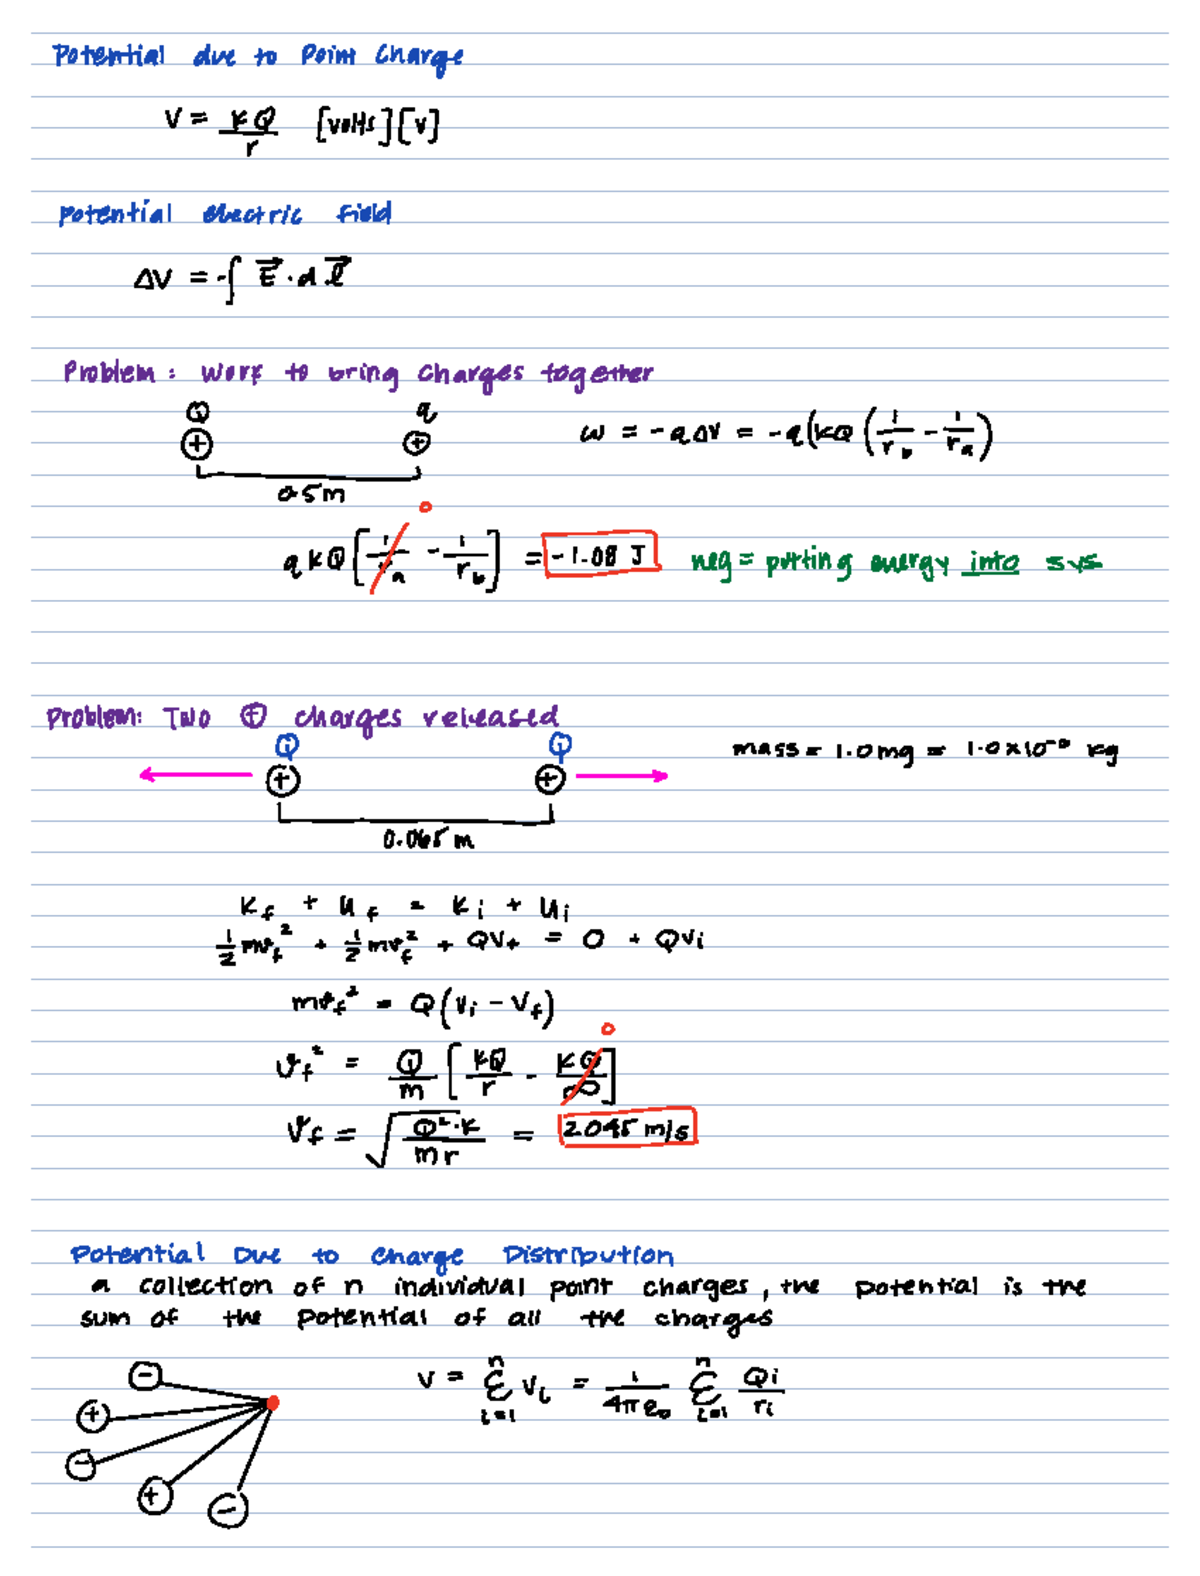 Potential due to Point Charge
V = kQ/r [volts][V]
Potential electric field
ΔV = -∫ E⃗ · d l⃗
Problem: Work to bring charges together
Q q
+ +
0.5m
ω = -qΔV = -q(kQ(1/r_b - 1/r_a)
qkQ[1/r_a - 1/r_b] = -1.08 J neg = putting energy into sys
0
Problem: Two ⊕ charges released
Q Q
+ +
mass = 1.0mg = 1.0×10 kg
0.065 m
K_f + U_f = K_i + U_i
1/2 mv_f² + 1/2 mv_f² + QV_f = 0 + QV_i
mv_f² = Q(V_i - V_f)
0
v_f² = Q/m [kQ/r - kQ/∞]
v_f = √(Q²·k/mr) = 2045 m/s
Potential Due to charge Distribution
a collection of n individual point charges, the potential is the
sum of the potential of all the charges
V = Σ_{i=1}^{n} V_i = 1/4πe₀ Σ_{i=1}^{n} Qi/ri
-
+
-
+
-